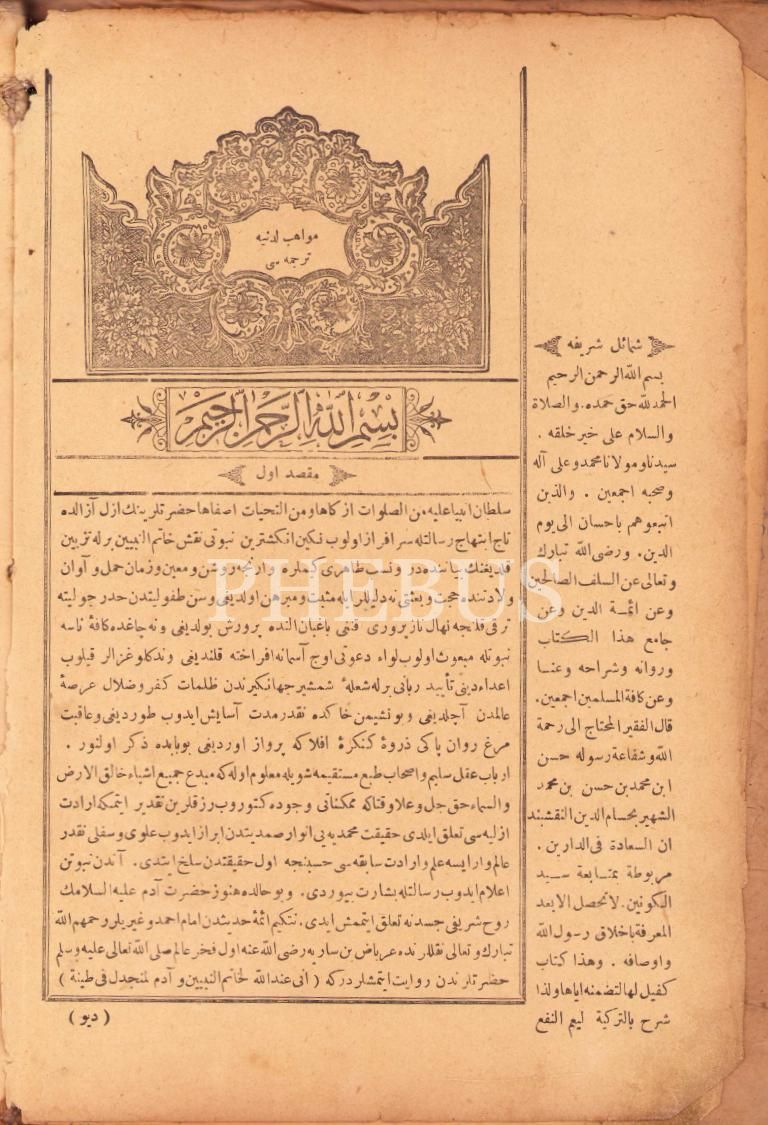 مواهب لدنیه
ترجمه سی
بسم الله الرحمن الرحيم
مقصد اول
سلطان انبیا علیه من الصلوات ازکاها ومن التحیات اصفاها حضرتلرینك ازل آزالده
تاج ابتهاج رسالتله سرافراز اولوب نکین انکشترین نبوتی نقش خاتم النبیین برله تزیین
قلدیغنك بیاننده در ونسب طاهری کیملره وارنجه روشن ومعین وزمان حمل و آوان
ولادتنده حجت وبعثتی نه دلیللر ایله مثبت ومبرهن اولدیغی وسن طفولیتدن حدرجولیته
ترقی قلایجه نهال نازپروری قنغی باغبان النده پرورش بولدیغی ونه چاغده کافهٔ ناسه
نبوتله مبعوث اولوب لواء دعوتی اوج آسمانه افراخته قلندیغی وندکلو غزالر قیلوب
اعداء دینی تأیید ربانی برله شعلهٔ شمشیر جهانکیرندن ظلمات کفر وضلال عرصهٔ
عالمدن آچلدیغی و بو نشیمن خاکده نقدر مدت آسایش ایدوب طوردیغی وعاقبت
مرغ روان پاکی ذروهٔ کنکرهٔ افلاکه پرواز اوردیغی بوبابده ذکر اولنور .
ارباب عقل سلیم واصحاب طبع مستقیمه شویله معلوم اوله که مبدع جمیع اشیاء خالق الارض
والسماء حق جل وعلا وقتاکه ممکناتی وجوده کتوروب رزقلرین تقدیر ایتمکه ارادت
ازلیه سی تعلق ایلدی حقیقت محمدیه یی انوار صمدیتدن ابراز ایدوب علوی وسفلی نقدر
عالم وارایسه علم وارادت سابقه سی حسبنجه اول حقیقتدن سلیخ ایتدی . آندن نبوتن
اعلام ایدوب رسالتله بشارت بیوردی . وبو حالده هنوز حضرت آدم علیه السلامك
روح شریفی جسدنه تعلق ایتمش ایدی . نتکیم ائمهٔ حدیثدن امام احمد وغیریلر رحمهم الله
تبارك وتعالی نقللرنده عرباض بن ساریه رضی الله عنه اول فخر عالم صلی الله تعالی علیه وسلم
حضرتلرندن روایت ایتمشلردرکه ( انی عند الله لخاتم النبیین و آدم لمنجدل فی طینة )
( دیو )
شمائل شریفه
بسم الله الرحمن الرحیم
الحمد لله حق حمده. والصلاة
والسلام علی خیر خلقه .
سیدنا ومولانا محمد وعلی آله
وصحبه اجمعین . والذین
اتبعوهم باحسان الی یوم
الدین . ورضی الله تبارك
وتعالی عن السلف الصالحین
وعن ائمة الدین وعن
جامع هذا الکتاب
وروانه وشراحه وعنا
وعن کافة المسلمین اجمعین.
قال الفقیر المحتاج الی رحمة
الله وشفاعة رسوله حسن
ابن محمد بن حسن بن محمد
الشهیر بحسام الدین النقشبند
ان السعادة فی الدارین .
مربوطة بمتابعة سید
الکونین . لا تحصل الا بعد
المعرفة باخلاق رسول الله
واوصافه . وهذا کتاب
کفیل لها لتضمنه ایاها ولذا
شرح بالترکیة لیعم النفع
PHEBUS